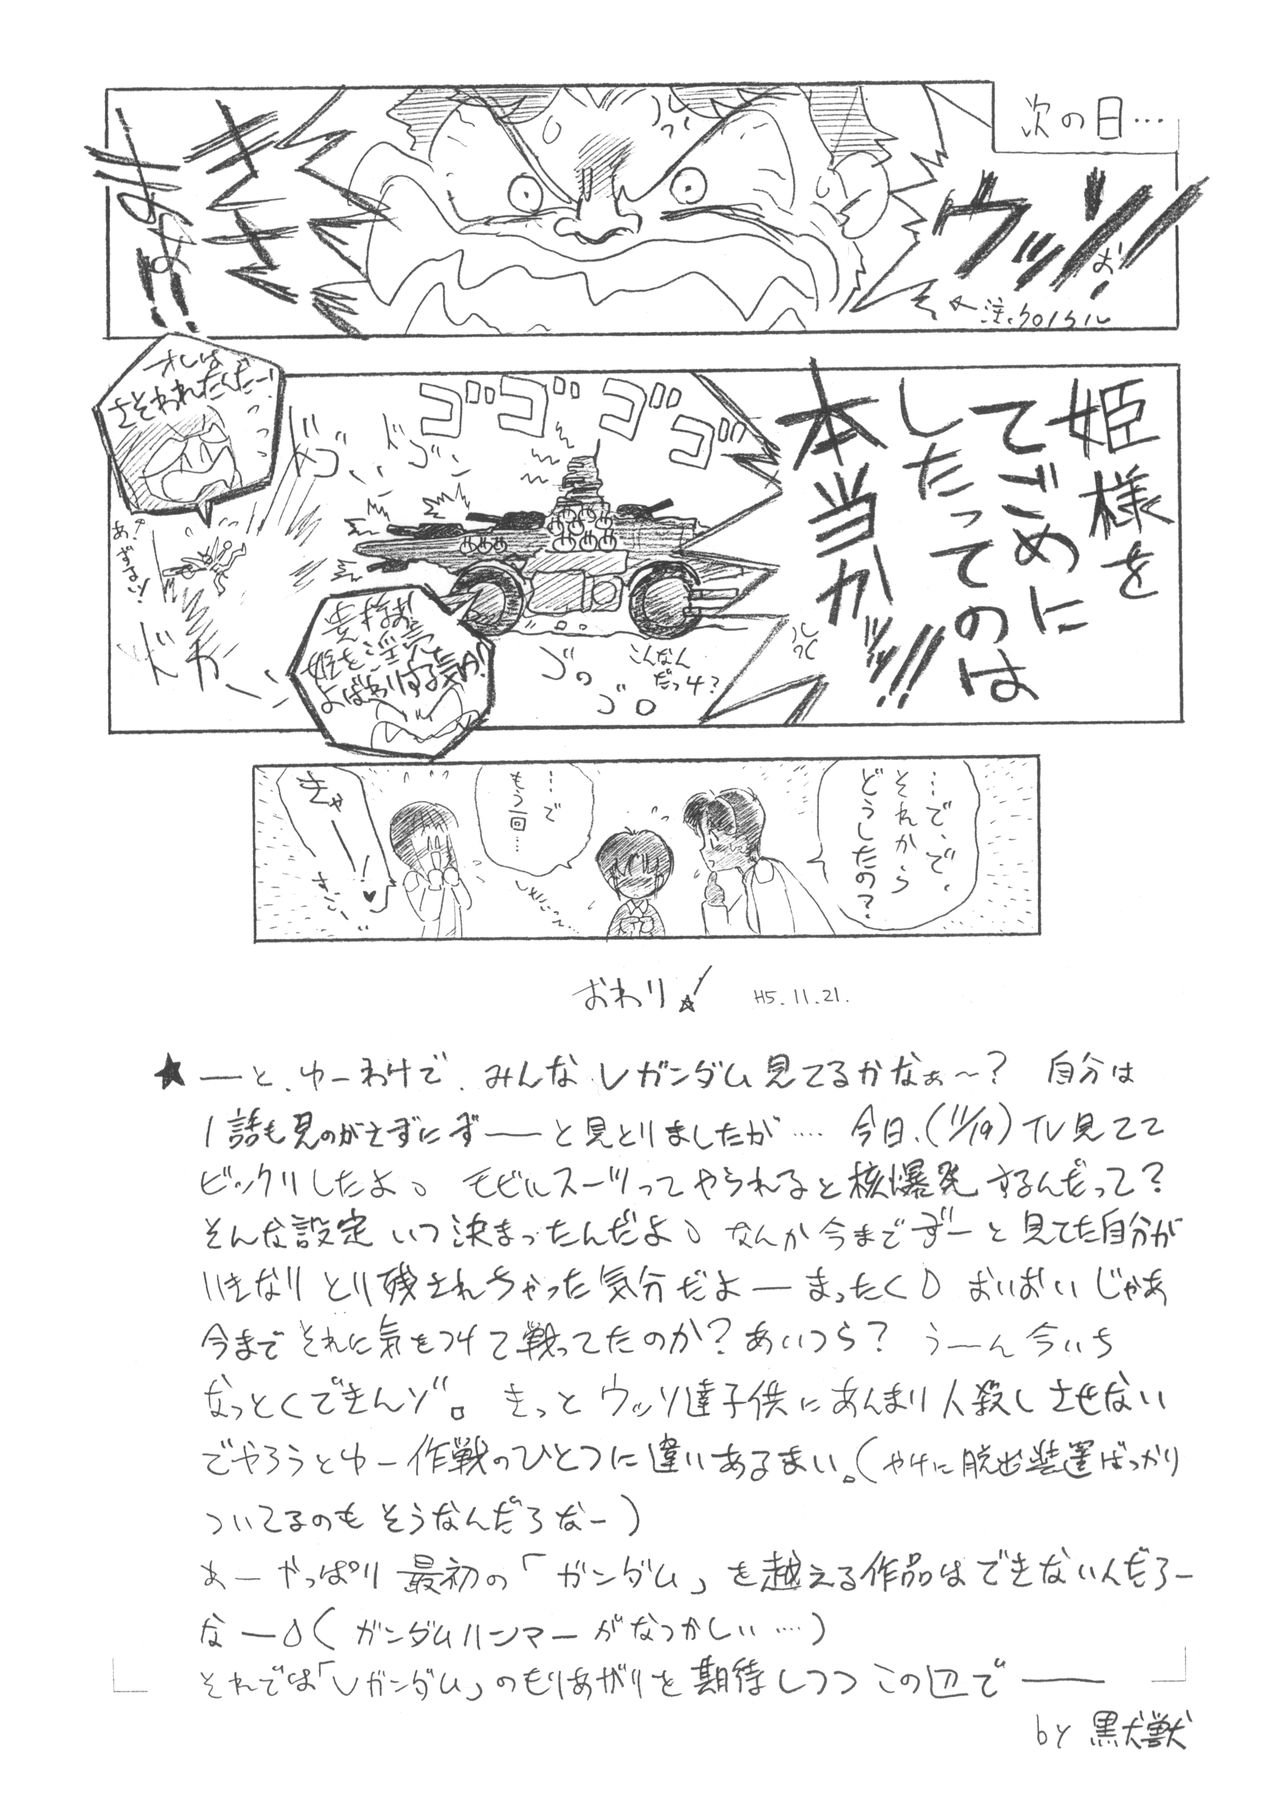 次の日…
ウッソぉ!
きさ
まぁ!!
そ ← 注、クロノクル
姫様を
てごめに
したってのは
本当かッ!!!
オレは
さそわれたんだー!
ゴゴゴゴ
ドゴ
ドゴ
あ!
ドカ
ゴロ
ゴロ
こんなん
だっけ?
貴様ぁ
姫を淫売
よばわりする気か!?
…で、で、
それから
どうしたの?
…で
もう一回…
きゃー!♥
すごーい
おわり! H5.11.21.
★ーと、ゆーわけで、みんなVガンダム見てるかなぁ〜? 自分は
1話も見のがさずにずーーと見とりましたが…… 今日、(11/19)TV見てて
ビックリしたよ。 モビルスーツってやられると核爆発するんだって?
そんな設定いつ決まったんだよ。なんか今までずーと見てた自分が
いきなりとり残されちゃった気分だよーまったく。 おいおいじゃあ
今までそれに気をつけて戦ってたのか?あいつら? うーん今いち
なっとくできんゾ。 きっとウッソ達子供にあんまり人殺しさせない
でやろうとゆー作戦のひとつに違いあるまい。(やけに脱出装置ばっかり
ついてるのもそうなんだろなー)
あーやっぱり最初の「ガンダム」を越える作品はできないんだろー
なー。(ガンダムハンマーがなつかしい…)
それでは「Vガンダム」のもりあがりを期待しつつこの辺でーー
by 黒犬獣